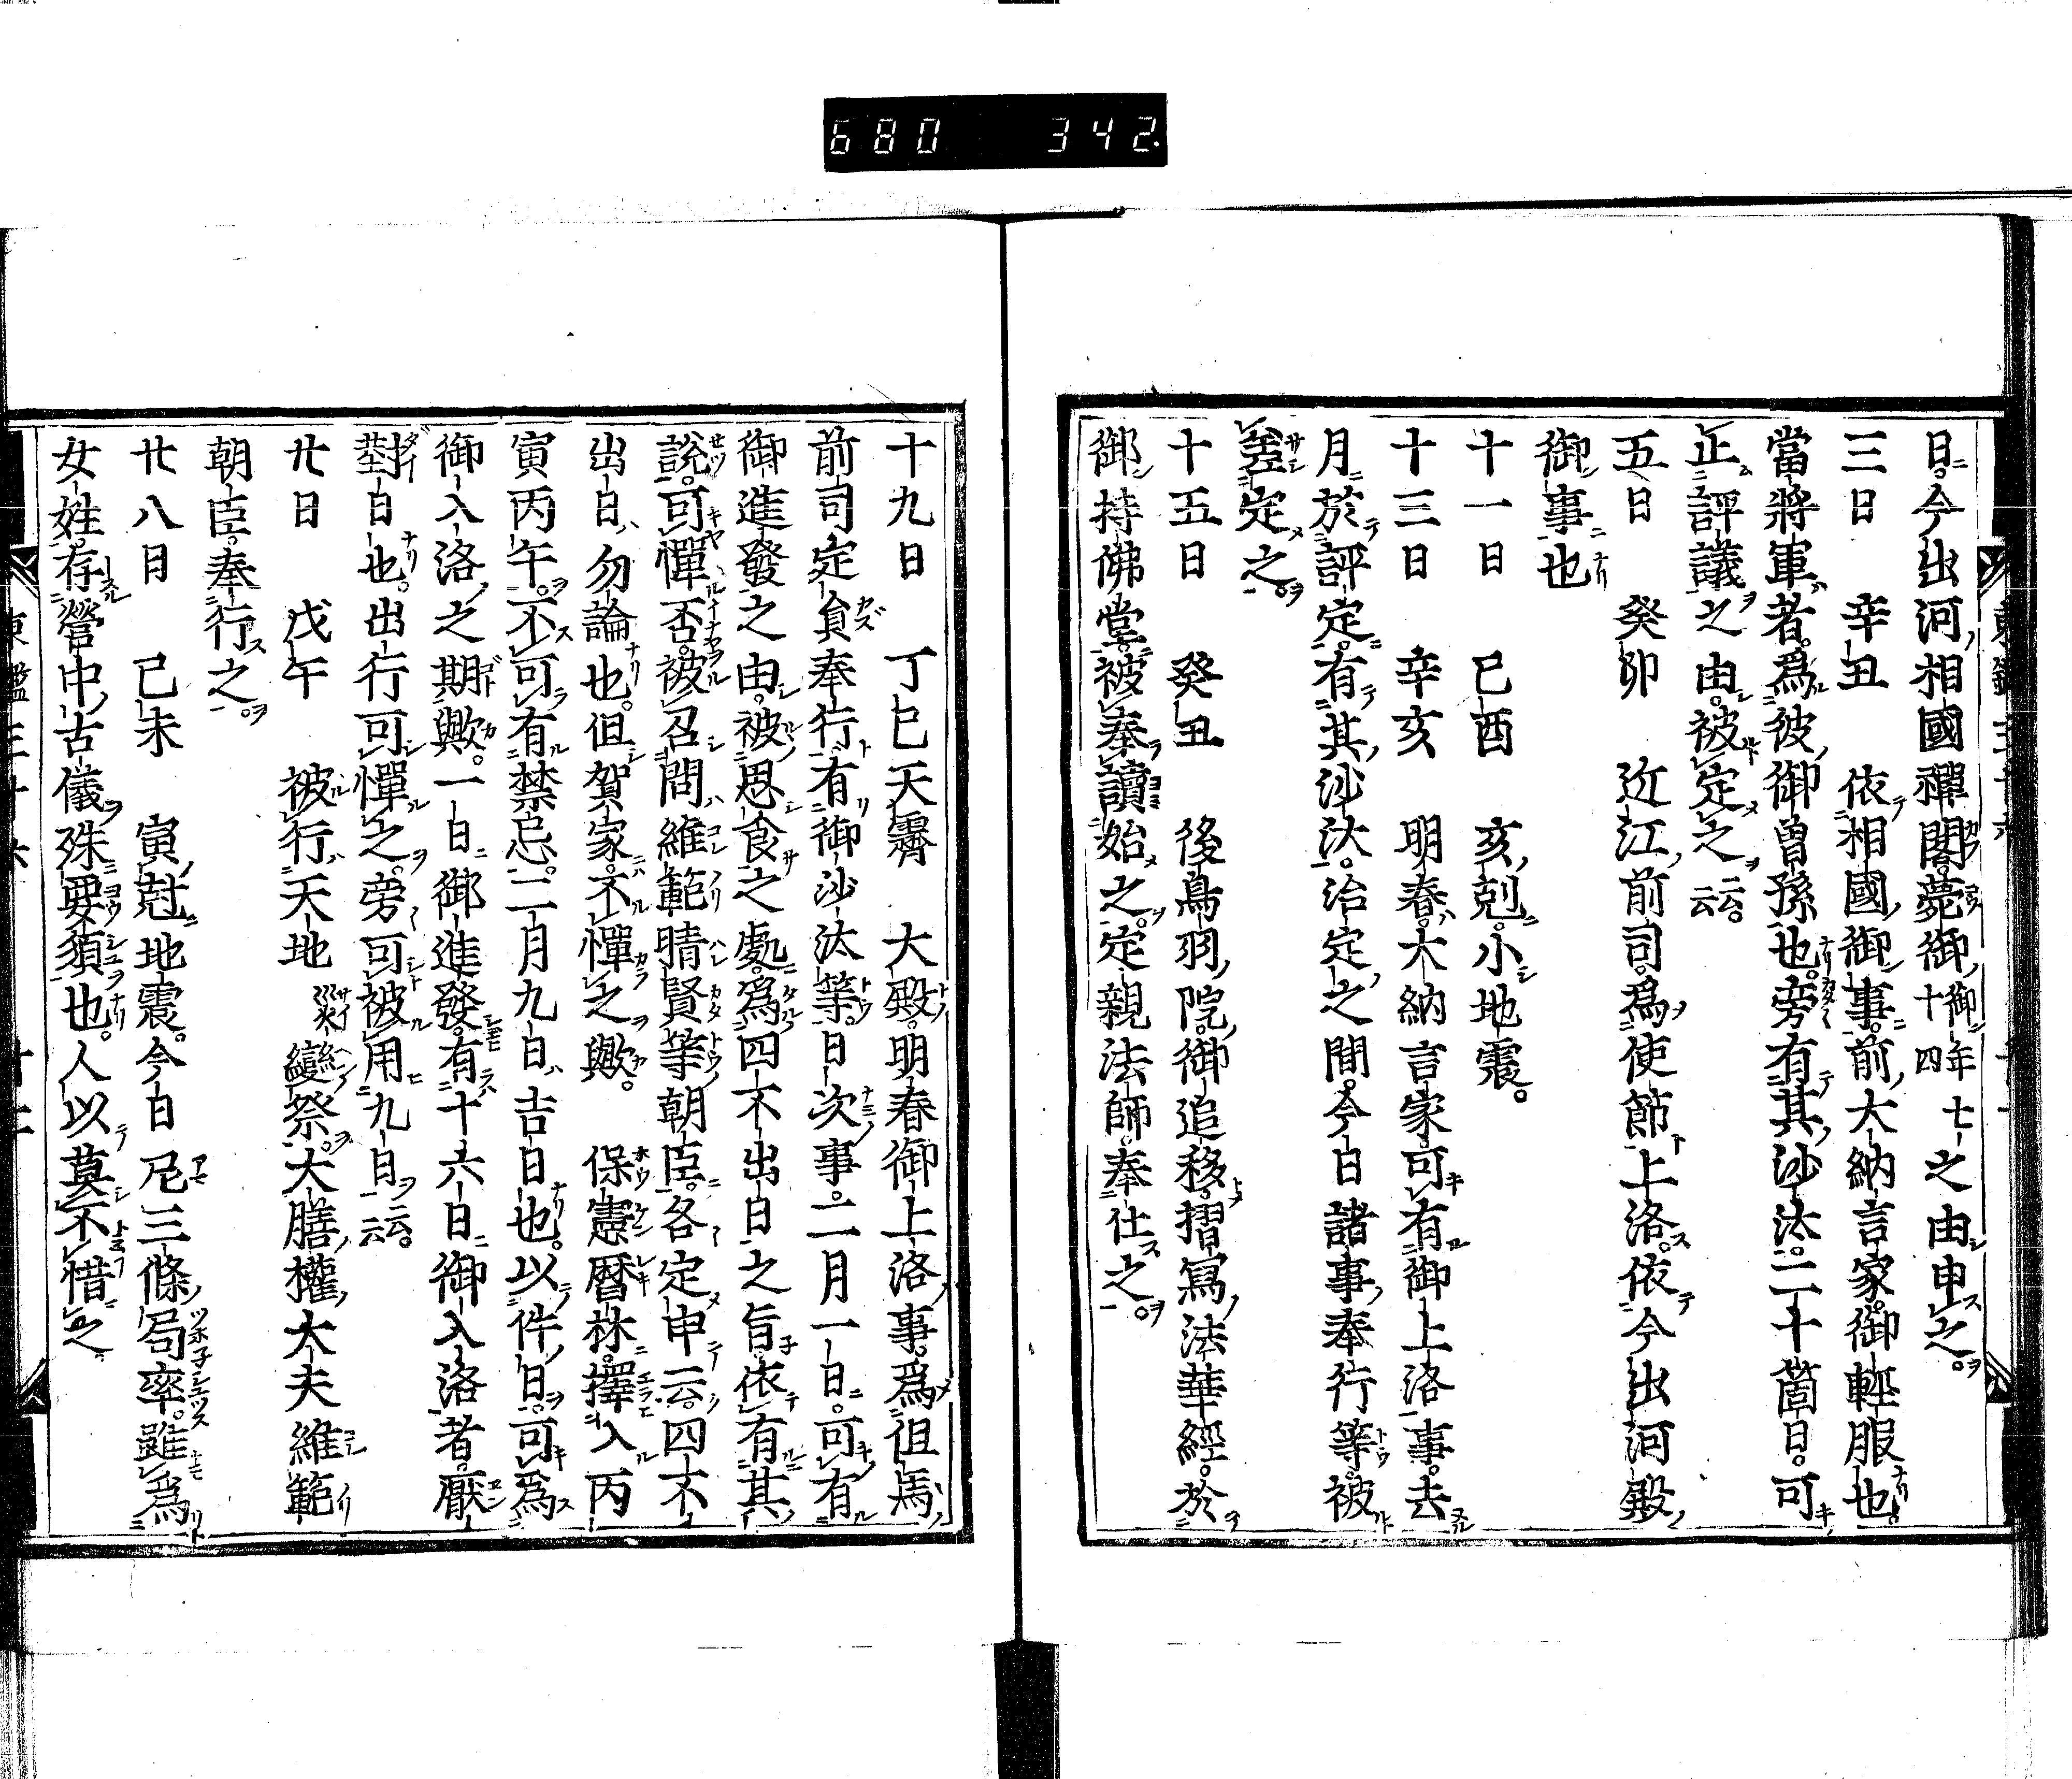 680 342.
日。今出河相國禪閤薨御御年十四七之由申之。
三日 辛丑 依相國御事。前大納言家。御輕服也。
當將軍者。爲彼御曾孫也。旁有其沙汰。二十箇日。可
正評議之由。被定之云云。
五日 癸卯 近江前司。爲使節上洛。依今出河殿
御事也
十一日 己酉 亥剋。小地震。
十三日 辛亥 明春。大納言家。可有御上洛事。去
月於評定。有其沙汰。治定之間。今日諸事奉行等。被
差定之。
十五日 癸丑 後鳥羽院。御追移。摺寫法華經。於
御持佛堂。被奉讀始之。定親法師。奉仕之。
十九日 丁巳天霽 大殿。明春御上洛事。爲但馬
前司定員奉行有御沙汰等。日次事。二月一日。可有
御進發之由。被思食之處。爲四不出日之旨。依有其
說。可憚否。被召問維範晴賢等朝臣。各定申云。四不
出日。勿論也。但賀家。不憚之歟。 保憲暦林。擇入丙
寅丙午。不可有禁忌。二月九日。吉日也。以件日。可爲
御入洛之期歟。一日御進發。有十六日御入洛者。厭
對日也。出行可憚之。旁可被用九日云云。
廿日 戊午 被行天地災變祭。大膳權大夫維範
朝臣。奉行之。
廿八日 己未 寅剋地震。今日尼三條局卒。雖爲
女姓。存營中古儀。殊要須也。人以莫不惜之